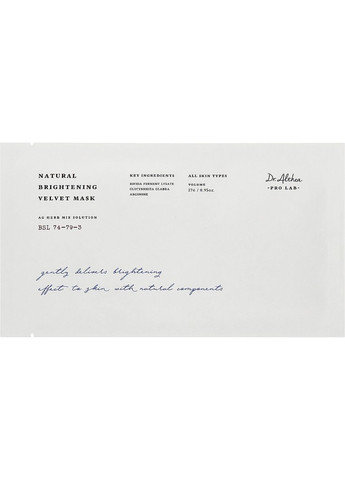 NATURAL
BRIGHTENING
VELVET MASK
KEY INGREDIENTS
ARGININE
ALL SKIN TYPES
VOLUME
27g / 0.95oz.
Dr. Althea
·PRO LAB·
AG HERB MIX SOLUTION
BSL 74-79-3
gently delivers brightening
effect to skin with natural components